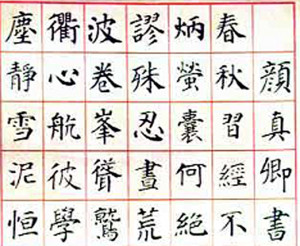 顏真卿書
春秋習經不
炳螢囊何絕
謬殊忍晝荒
波卷峯聳鷲
衢心航彼學
塵靜雪泥恒